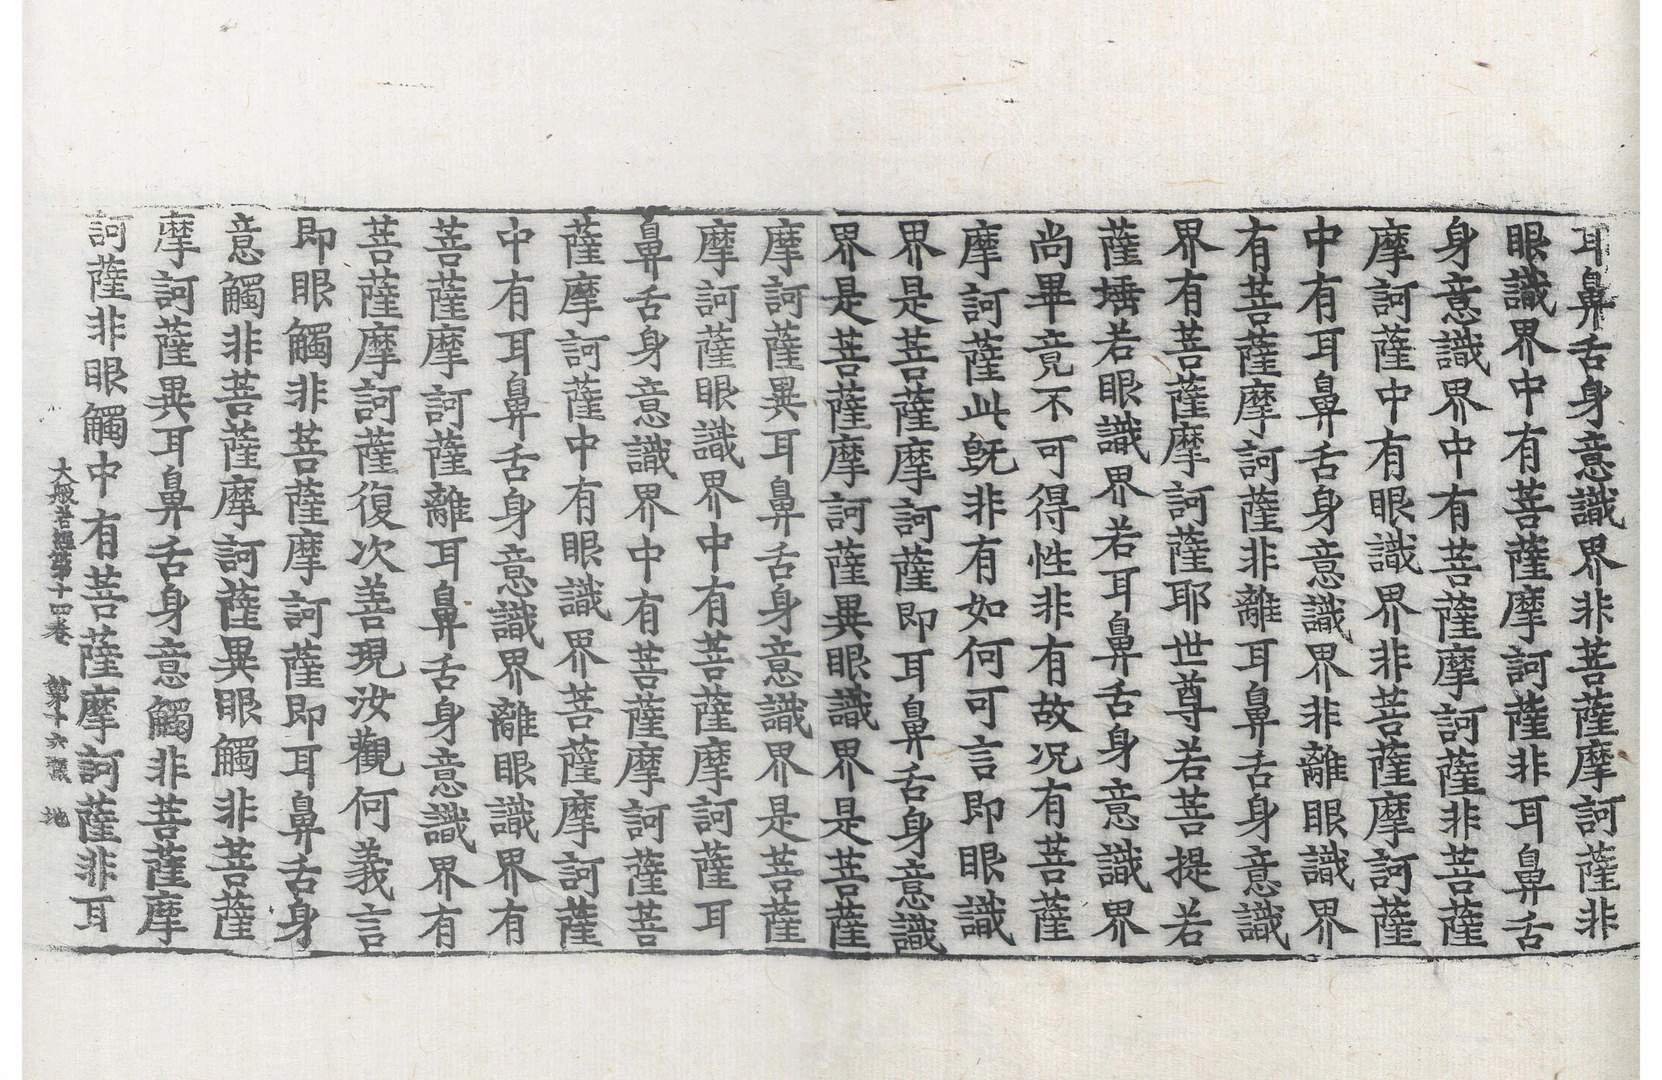 耳鼻舌身意識界非菩薩摩訶薩非
眼識界中有菩薩摩訶薩非耳鼻舌
身意識界中有菩薩摩訶薩非菩薩
摩訶薩中有眼識界非菩薩摩訶薩
中有耳鼻舌身意識界非離眼識界
有菩薩摩訶薩非離耳鼻舌身意識
界有菩薩摩訶薩耶世尊若菩提若
薩埵若眼識界若耳鼻舌身意識界
尚畢竟不可得性非有故况有菩薩
摩訶薩此旣非有如何可言即眼識
界是菩薩摩訶薩即耳鼻舌身意識
界是菩薩摩訶薩異眼識界是菩薩
摩訶薩異耳鼻舌身意識界是菩薩
摩訶薩眼識界中有菩薩摩訶薩耳
鼻舌身意識界中有菩薩摩訶薩菩
薩摩訶薩中有眼識界菩薩摩訶薩
中有耳鼻舌身意識界離眼識界有
菩薩摩訶薩離耳鼻舌身意識界有
菩薩摩訶薩復次善現汝觀何義言
即眼觸非菩薩摩訶薩即耳鼻舌身
意觸非菩薩摩訶薩異眼觸非菩薩
摩訶薩異耳鼻舌身意觸非菩薩摩
訶薩非眼觸中有菩薩摩訶薩非耳
大般若經第十四卷 第十六張 地